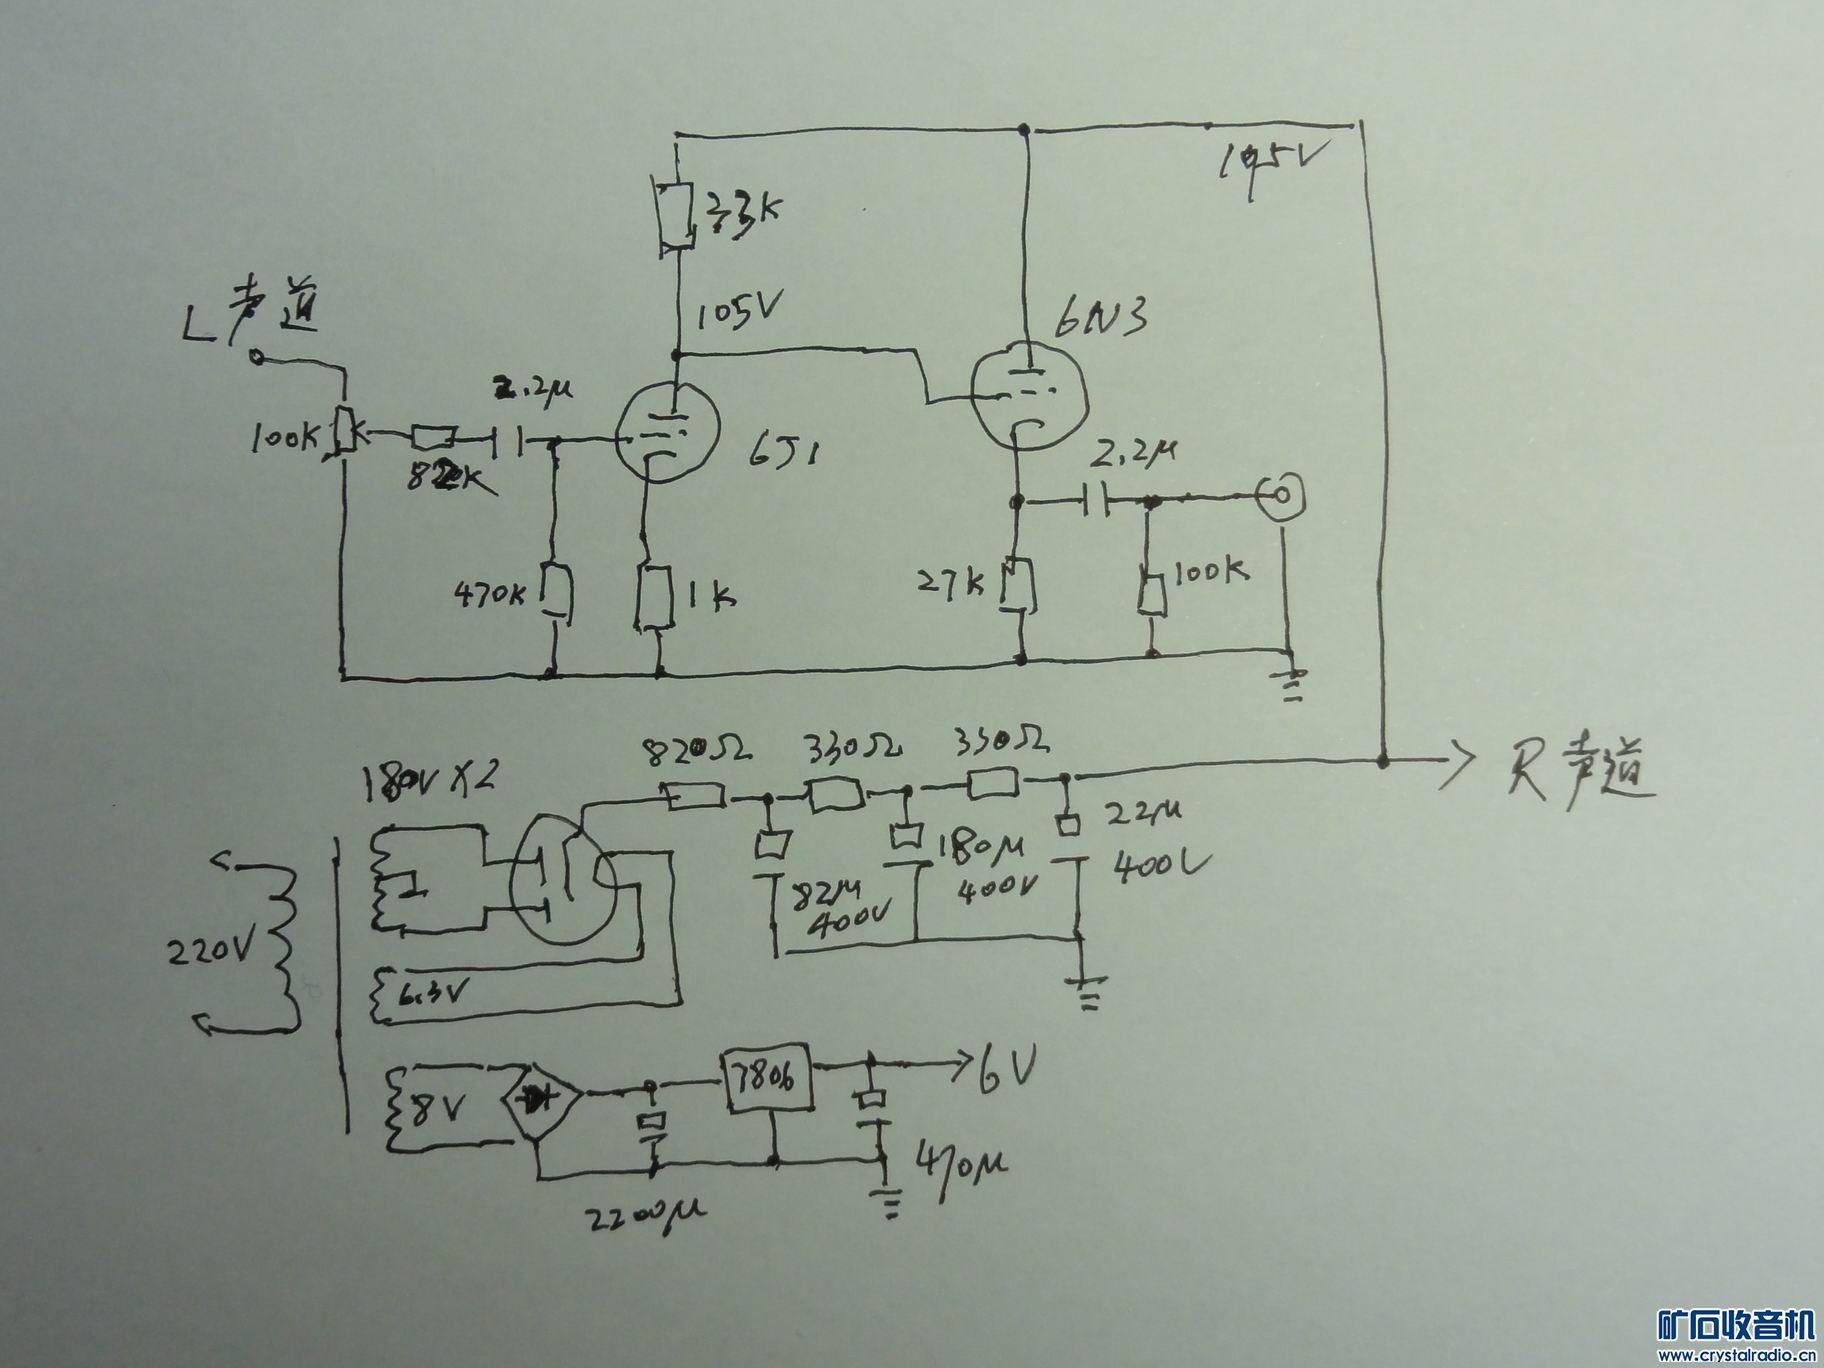 195V
33K
L声道
105V
6N3
2.2μ
100K
82K
6J1
2.2μ
470K
1K
27K
100K
820Ω
330Ω
330Ω
R声道
180V×2
22μ
400V
180μ
400V
82μ
400V
220V
6.3V
8V
7806
6V
470μ
2200μ
矿石收音机
www.crystalradio.cn